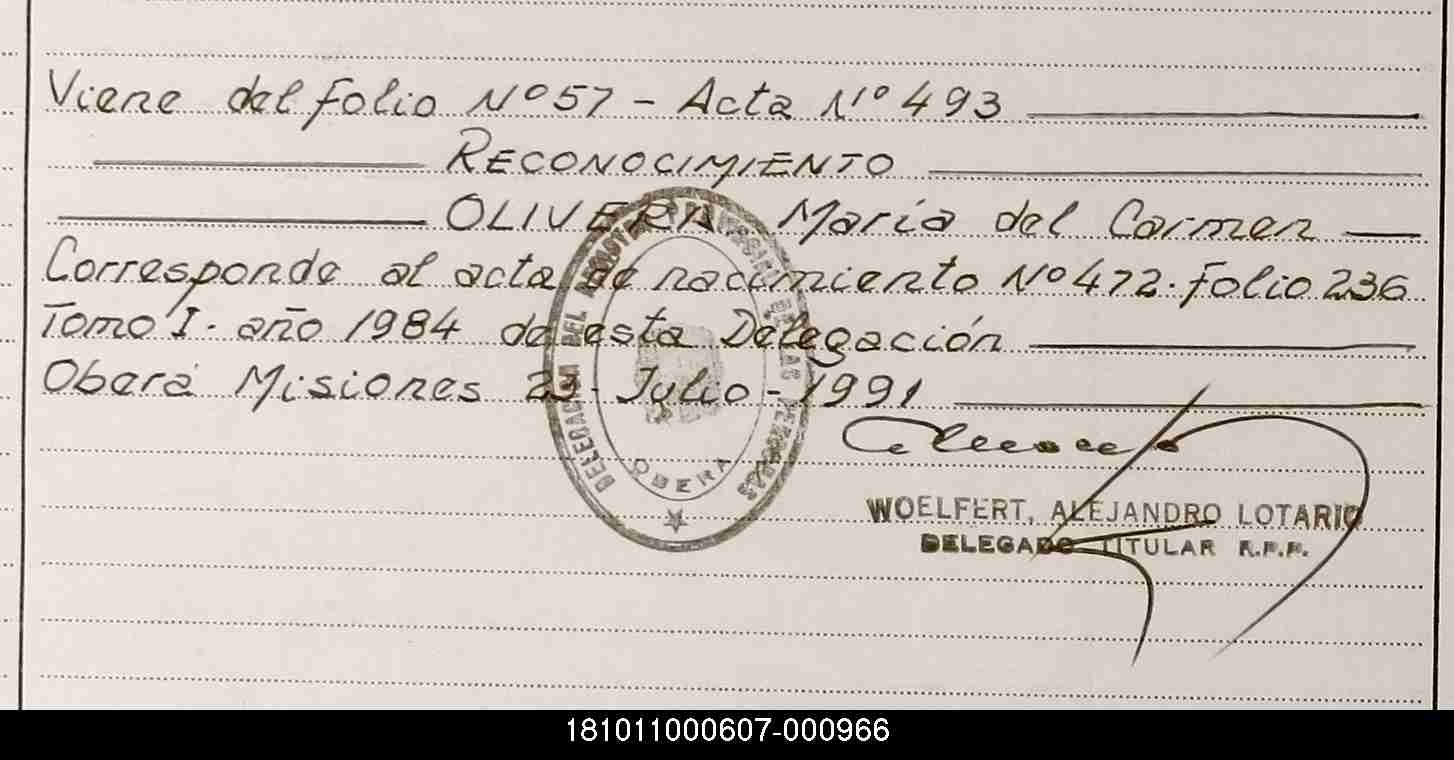 Viene del folio Nº 57 - Acta Nº 493
RECONOCIMIENTO
OLIVERA María del Carmen
Corresponde al acta de nacimiento Nº 472. folio 236
Tomo I. año 1984 de esta Delegación
Oberá Misiones 23 - Julio - 1991
DELEGACION DEL REGISTRO PROVINCIAL DE LAS PERSONAS
OBERA
WOELFERT, ALEJANDRO LOTARIO
DELEGADO TITULAR R.P.P.
181011000607-000966